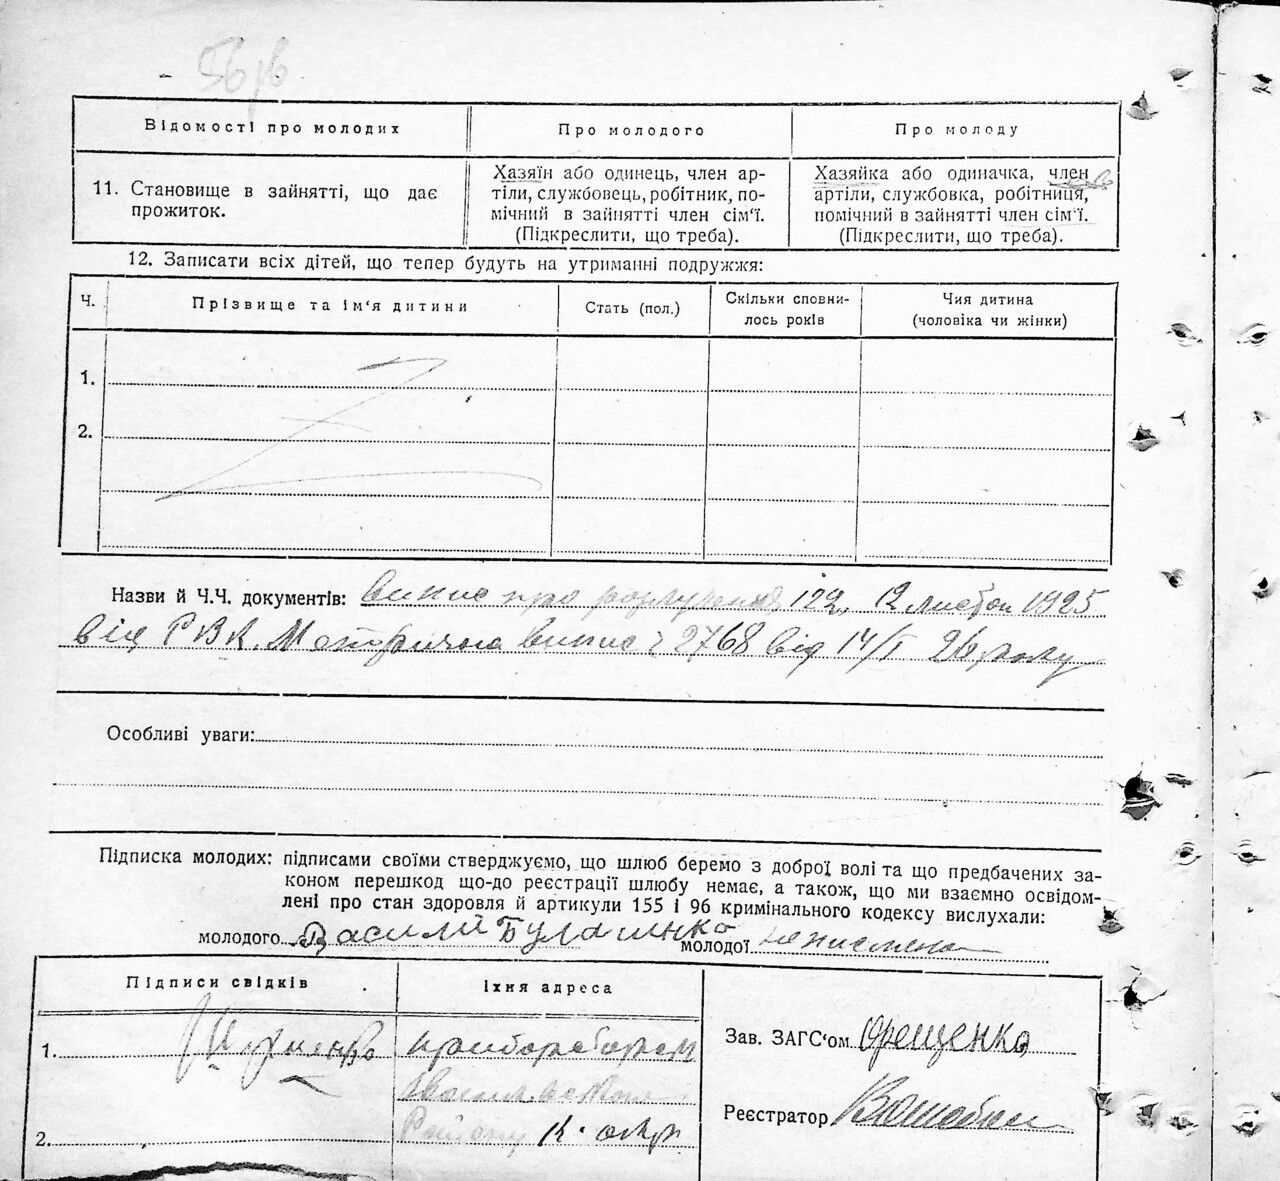 Відомості про молодих
Про молодого
Про молоду
11. Становище в зайнятті, що дає
прожиток.
Хазяїн або одинець, член ар-
тілі, службовець, робітник, по-
мічний в зайнятті член сім'ї.
(Підкреслити, що треба).
Хазяйка або одиначка, член
артілі, службовка, робітниця,
помічний в зайнятті член сім'ї.
(Підкреслити, що треба).
12. Записати всіх дітей, що тепер будуть на утриманні подружжя:
Ч.
Прізвище та ім'я дитини
Стать (пол.)
Скільки сповни-
лось років
Чия дитина
(чоловіка чи жінки)
1.
2.
Назви й Ч.Ч. документів: Випис про 122, 12 листоп 1925
від РВК. Метрична випис ч 2768 від 14/I 26 року
Особливі уваги:
Підписка молодих: підписами своїми стверджуємо, що шлюб беремо з доброї волі та що предбачених за-
коном перешкод що-до реєстрації шлюбу немає, а також, що ми взаємно освідом-
лені про стан здоровля й артикули 155 і 96 кримінального кодексу вислухали:
молодого Василий молодої неписмена
Підписи свідків
Їхня адреса
1.
Зав. ЗАГС'ом Орещенко
Реєстратор
Району К. округ
2.